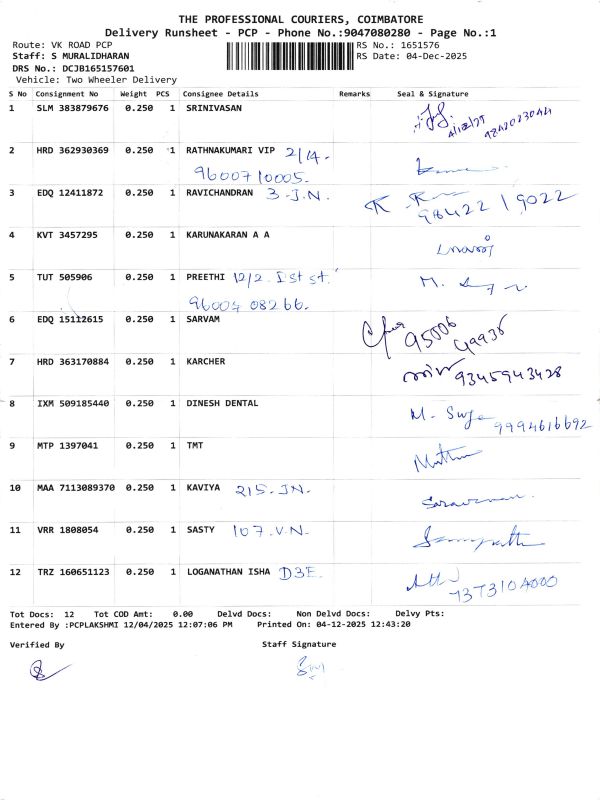 THE PROFESSIONAL COURIERS, COIMBATORE
Delivery Runsheet - PCP - Phone No.:9047080280 - Page No.:1
Route: VK ROAD PCP RS No.: 1651576
Staff: S MURALIDHARAN RS Date: 04-Dec-2025
DRS No.: DCJB165157601
Vehicle: Two Wheeler Delivery
S No Consignment No Weight PCS Consignee Details Remarks Seal & Signature
1 SLM 383879676 0.250 1 SRINIVASAN
2 HRD 362930369 0.250 1 RATHNAKUMARI VIP 2/14.
9600710005.
3 EDQ 12411872 0.250 1 RAVICHANDRAN 3-J.N.
98422 19022
4 KVT 3457295 0.250 1 KARUNAKARAN A A
5 TUT 505906 0.250 1 PREETHI 12/2. Ist st.
96004 08266.
6 EDQ 15112615 0.250 1 SARVAM
95006 49935
7 HRD 363170884 0.250 1 KARCHER
9345943428
8 IXM 509185440 0.250 1 DINESH DENTAL M. Surya
9994616692
9 MTP 1397041 0.250 1 TMT
10 MAA 7113089370 0.250 1 KAVIYA 215-JN. Saravanan.
11 VRR 1808054 0.250 1 SASTY 107.V.N. Sampath
12 TRZ 160651123 0.250 1 LOGANATHAN ISHA D3E.
Tot Docs: 12 Tot COD Amt: 0.00 Delvd Docs: Non Delvd Docs: Delvy Pts:
Entered By :PCPLAKSHMI 12/04/2025 12:07:06 PM Printed On: 04-12-2025 12:43:20
Verified By Staff Signature